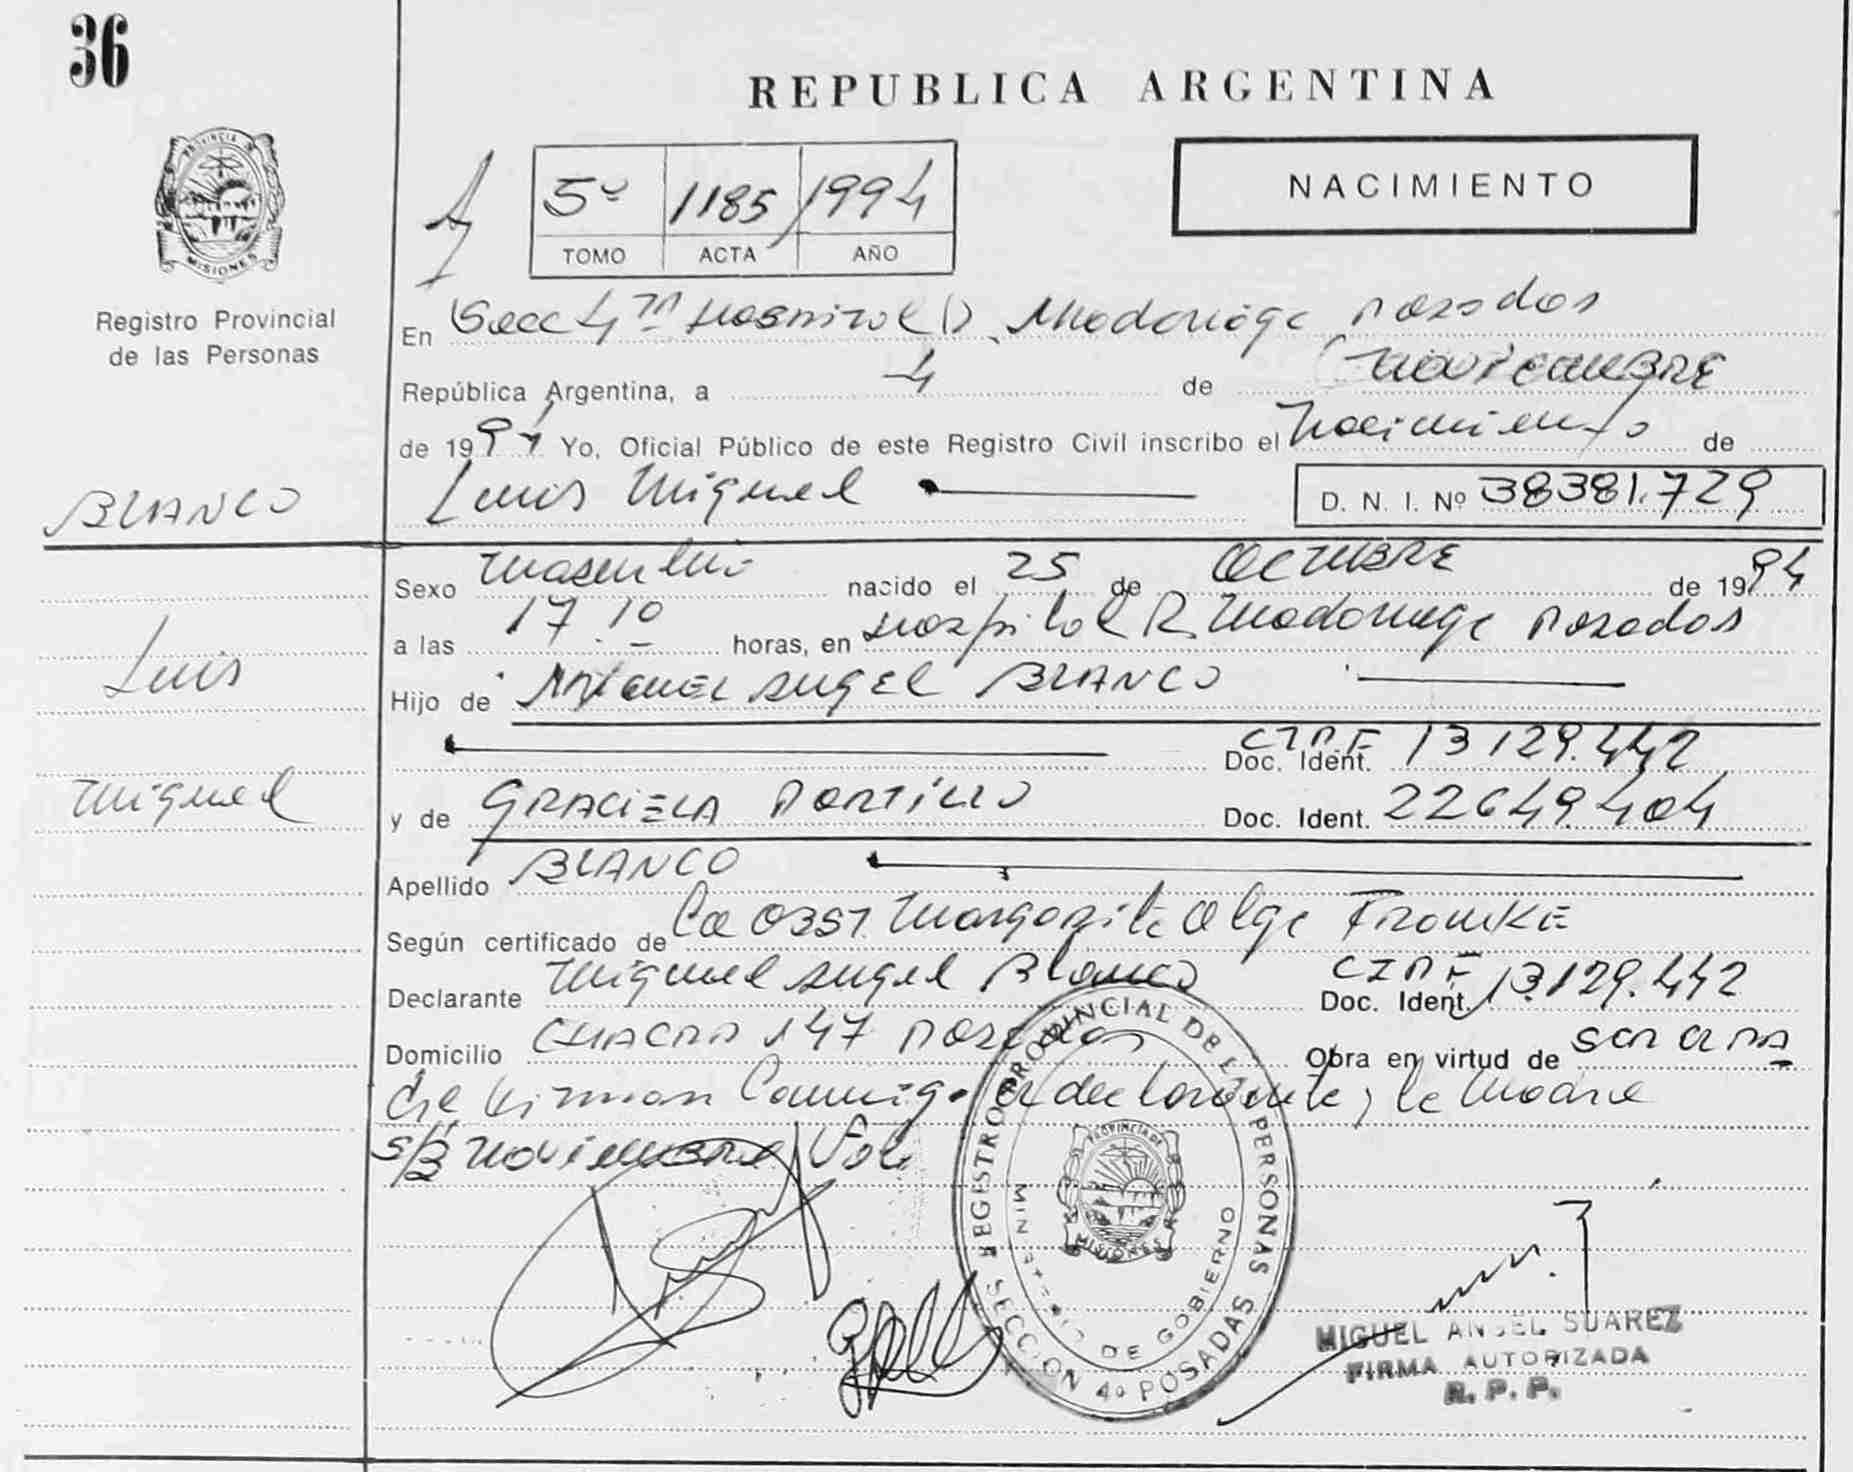 36
REPUBLICA ARGENTINA
PROVINCIA DE
MISIONES
Registro Provincial
de las Personas
5º 1185 1994
TOMO ACTA AÑO
NACIMIENTO
En Secc 4ta Hospital D. Madariaga Posadas
República Argentina, a 4 de Noviembre
de 1994 Yo, Oficial Público de este Registro Civil inscribo el Nacimiento de
BLANCO
Luis Miguel
D. N. I. Nº 38381.729
Sexo Masculino nacido el 25 de OCTUBRE de 1994
a las 17.10 horas, en Hospital R. Madariaga Posadas
Luis
Hijo de MIGUEL ANGEL BLANCO
CIPF Doc. Ident. 13129.442
Miguel
y de GRACIELA PORTILLO Doc. Ident. 22649.404
Apellido BLANCO
Según certificado de La OBST. Margarita Olga FROMKE
Declarante Miguel Angel Blanco CIPF Doc. Ident. 13.129.442
Domicilio CHACRA 147 Posadas Obra en virtud de
firman Conmigo el declarante y la Madre
S/B Noviembre Vale
REGISTRO PROVINCIAL DE PERSONAS
SECCION 4º POSADAS
MINISTERIO DE GOBIERNO
PROVINCIA DE
MISIONES
MIGUEL ANGEL SUAREZ
FIRMA AUTORIZADA
R. P. P.